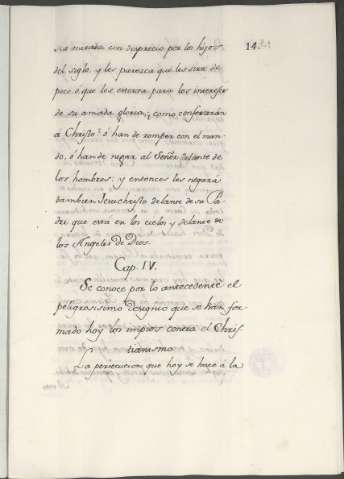 sea mirada con desprecio por los hijos
del siglo, y les paresca que les sirve de
poco ó que les estorva para los intereses
de su amada gloria; ¿como confesarán
á Christo? ó han de romper con el mun-
do, ó han de negar al Señor delante de
los hombres: y entonces les negará
tambien Jesu christo delante de su Pa-
dre que está en los cielos y delante de
los Angeles de Dios.
Cap. IV.
Se conoce por lo antecedente el
peligrosissimo designio que se han for-
mado hoy los impios contra el Chris-
tianismo
La persecucion que hoy se hace á la
14